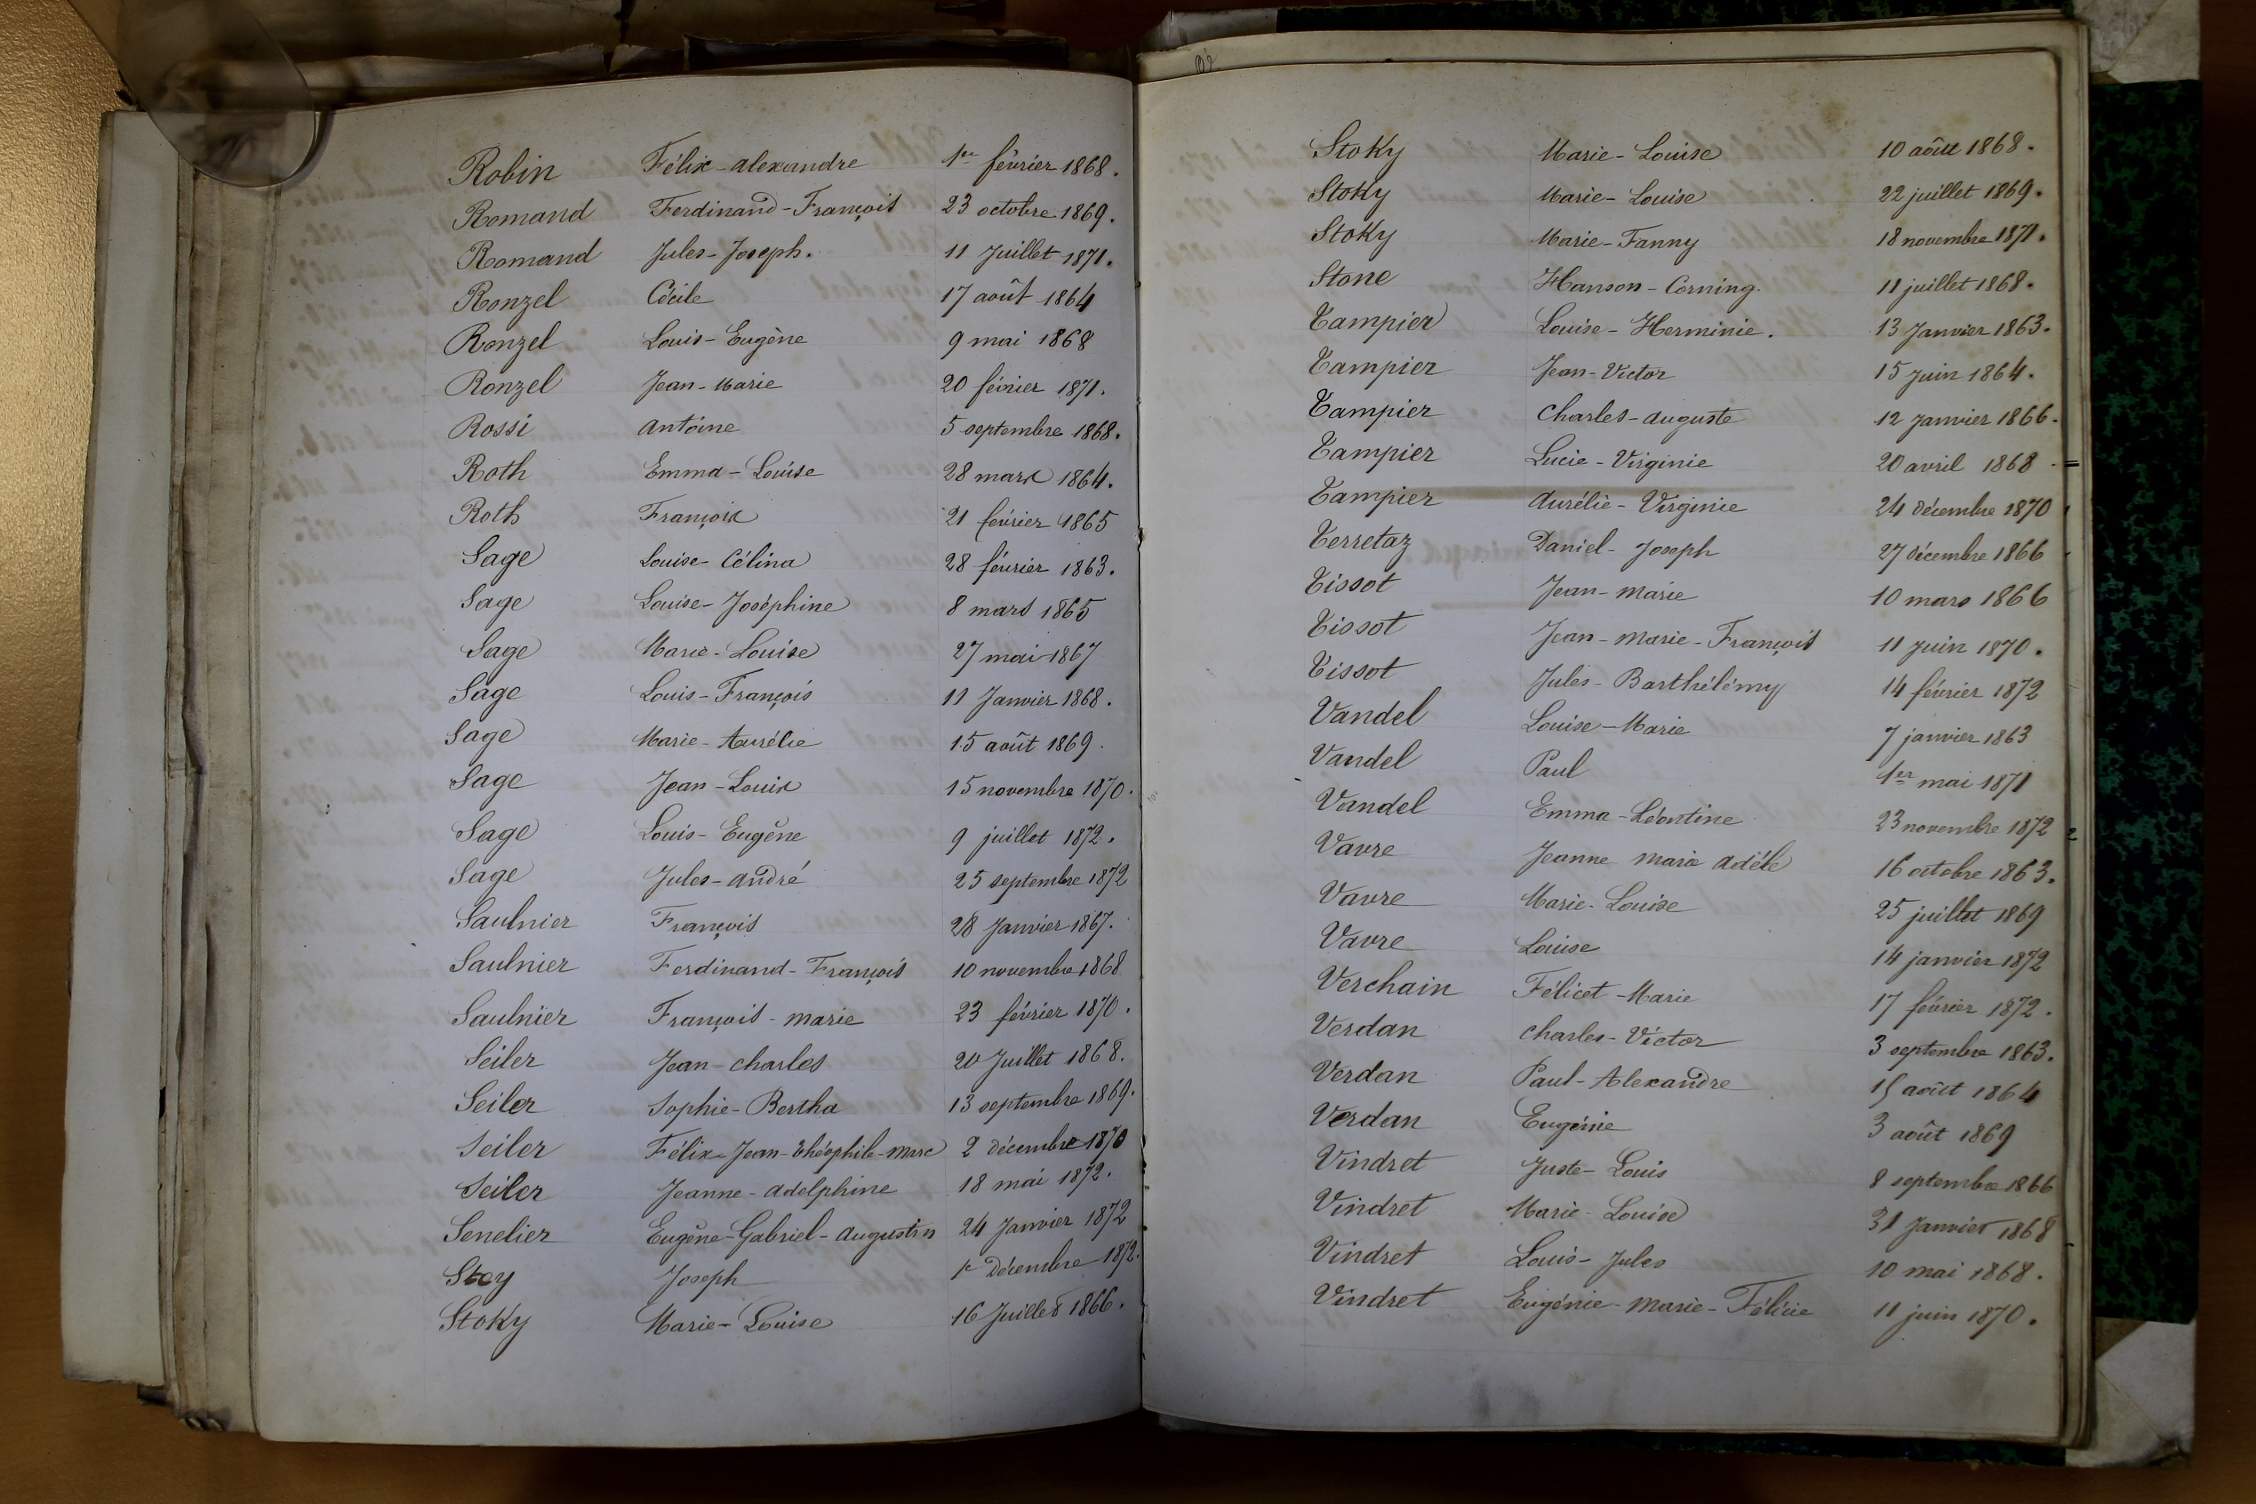 Robin Félix-alexandre 1er février 1868.
Romand Ferdinand-François 23 octobre 1869.
Romand Jules-Joseph. 11 Juillet 1871.
Ronzel Cécile 17 août 1864
Ronzel Louis-Eugène 9 mai 1868
Ronzel Jean-Marie 20 février 1871.
Rossi antoine 5 septembre 1868.
Roth Emma-Louise 28 mars 1864.
Roth François 21 février 1865
Sage Louise-Célina 28 février 1863.
Sage Louise-Joséphine 8 mars 1865
Sage Marie-Louise 27 mai 1867
Sage Louis-François 11 Janvier 1868.
Sage Marie-Aurélie 15 août 1869.
Sage Jean-Louis 15 novembre 1870.
Sage Louis-Eugène 9 juillet 1872.
Sage Jules-andré 25 septembre 1872
Saulnier François 28 Janvier 1867.
Saulnier Ferdinand-François 10 novembre 1868
Saulnier François-marie 23 février 1870.
Seiler Jean-charles 20 Juillet 1868.
Seiler Sophie-Bertha 13 septembre 1869.
Seiler Félix-Jean-théophile-marc 2 décembre 1870
Seiler Jeanne-adelphine 18 mai 1872.
Senelier Eugène-Gabriel-augustin 24 Janvier 1872
Stoy Joseph 1er Décembre 1872.
Stoky Marie-Louise 16 Juillet 1866.
Stoky Marie-Louise 10 août 1868.
Stoky Marie-Louise 22 juillet 1869.
Stoky Marie-Fanny 18 novembre 1871.
Stone Hanson-Corning. 11 juillet 1868.
Tampier Louise-Herminie. 13 Janvier 1863.
Tampier Jean-Victor 15 Juin 1864.
Tampier Charles-auguste 12 Janvier 1866.
Tampier Lucie-Virginie 20 avril 1868
Tampier Aurélie-Virginie 24 décembre 1870
Terretaz Daniel-Joseph 27 décembre 1866
Tissot Jean-marie 10 mars 1866
Tissot Jean-marie-François 11 Juin 1870.
Tissot Jules-Barthélémy 14 février 1872
Vandel Louise-Marie 7 janvier 1863
Vandel Paul 1er mai 1871
Vandel Emma-Léontine 23 novembre 1872
Vavre Jeanne marie adèle 16 octobre 1863.
Vavre Marie-Louise 25 juillet 1869
Vavre Louise 14 janvier 1872
Verchain Félicet-Marie 17 février 1872.
Verdan charles-Victor 3 septembre 1863.
Verdan Paul-Alexandre 15 août 1864
Verdan Eugénie 3 août 1869
Vindret Juste-Louis 8 septembre 1866
Vindret Marie-Louise 31 Janvier 1868
Vindret Louis-Jules 10 mai 1868.
Vindret Eugénie-marie-Félicie 11 juin 1870.